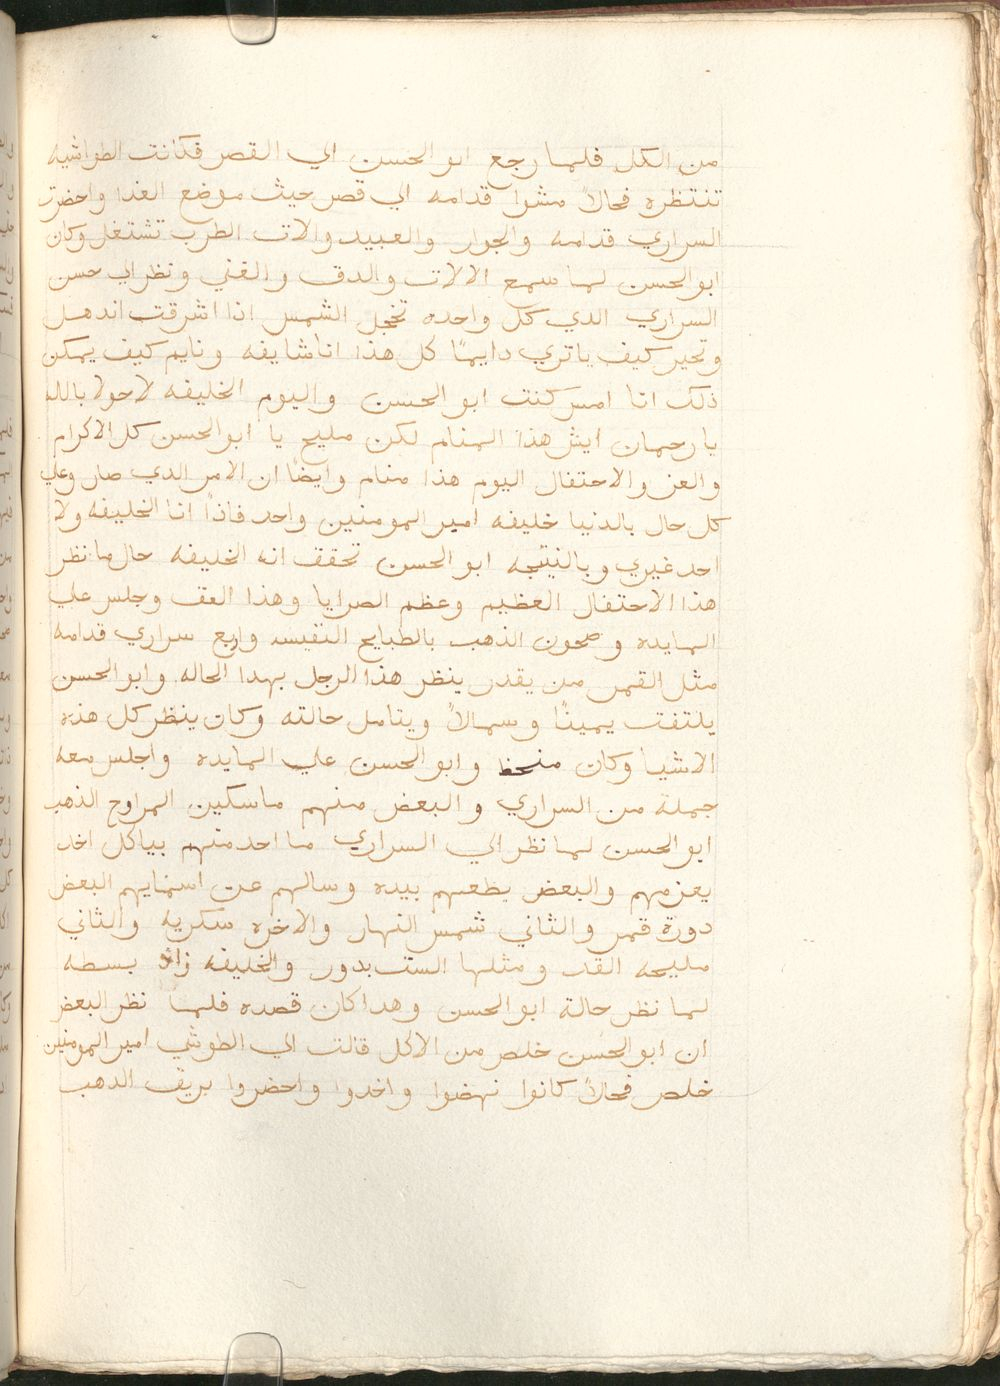 من الكل فلما رجع ابو الحسن الي القصر فكانت الطواشيه
تنتظره فحالاً مشوا قدامه الي قصر حيث موضع الغدا واحضرت
السراري قدامه والجوار والعبيد والات الطرب تشتغل وكان
ابو الحسن لما سمع الالات والدف والغني ونظر الي حسن
السراري الدي كل واحده تخجل الشمس اذا اشرقت اندهل
وتحير كيف يا تري دايمًا كل هذا انا شايفه ونايم كيف يمكن
ذلك انا امس كنت ابو الحسن واليوم الخليفه لا حولا بالله
يا رحمان ايش هذا المنام لكن مليح يا ابو الحسن كل الاكرام
والعز والاحتفال اليوم هذا منام وايضًا ان الامر الدي صار وعلي
كل حال بالدنيا خليفه امير المومنين واحد فاذاً انا الخليفه ولا
احد غيري وبالنتيجه ابو الحسن تحقق انه الخليفه حال ما نظر
هذا الاحتفال العظيم وعظم الصرايا وهذا العقد وجلس علي
المايده وصحون الذهب بالطبايخ النفيسه واربع سراري قدامه
مثل القمر من يقدر ينظر هذا الرجل بهدا الحاله وابو الحسن
يلتفت يمينًا وسمالاً ويتامل حالته وكان ينظر كل هذه
الاشيا وكان منحظ وابو الحسن علي المايده واجلس معه
جملة من السراري والبعض منهم ماسكين المراوح الذهب
ابو الحسن لما نظر الي السراري ما احد منهم بياكل اخد
يعزمهم والبعض يطعمهم بيده وسالهم عن اسمايهم البعض
دورة قمر والثاني شمس النهار والاخره سكريه والثاني
مليحه القد ومثلها الست بدور والخليفه زاد بسطه
لما نظر حالة ابو الحسن وهدا كان قصده فلما نظر البعض
ان ابو الحسن خلص من الاكل قالت الي الطوشي امير المومنين
خلص فحالاً كانوا نهضوا واخدوا واحضروا بريق الدهب